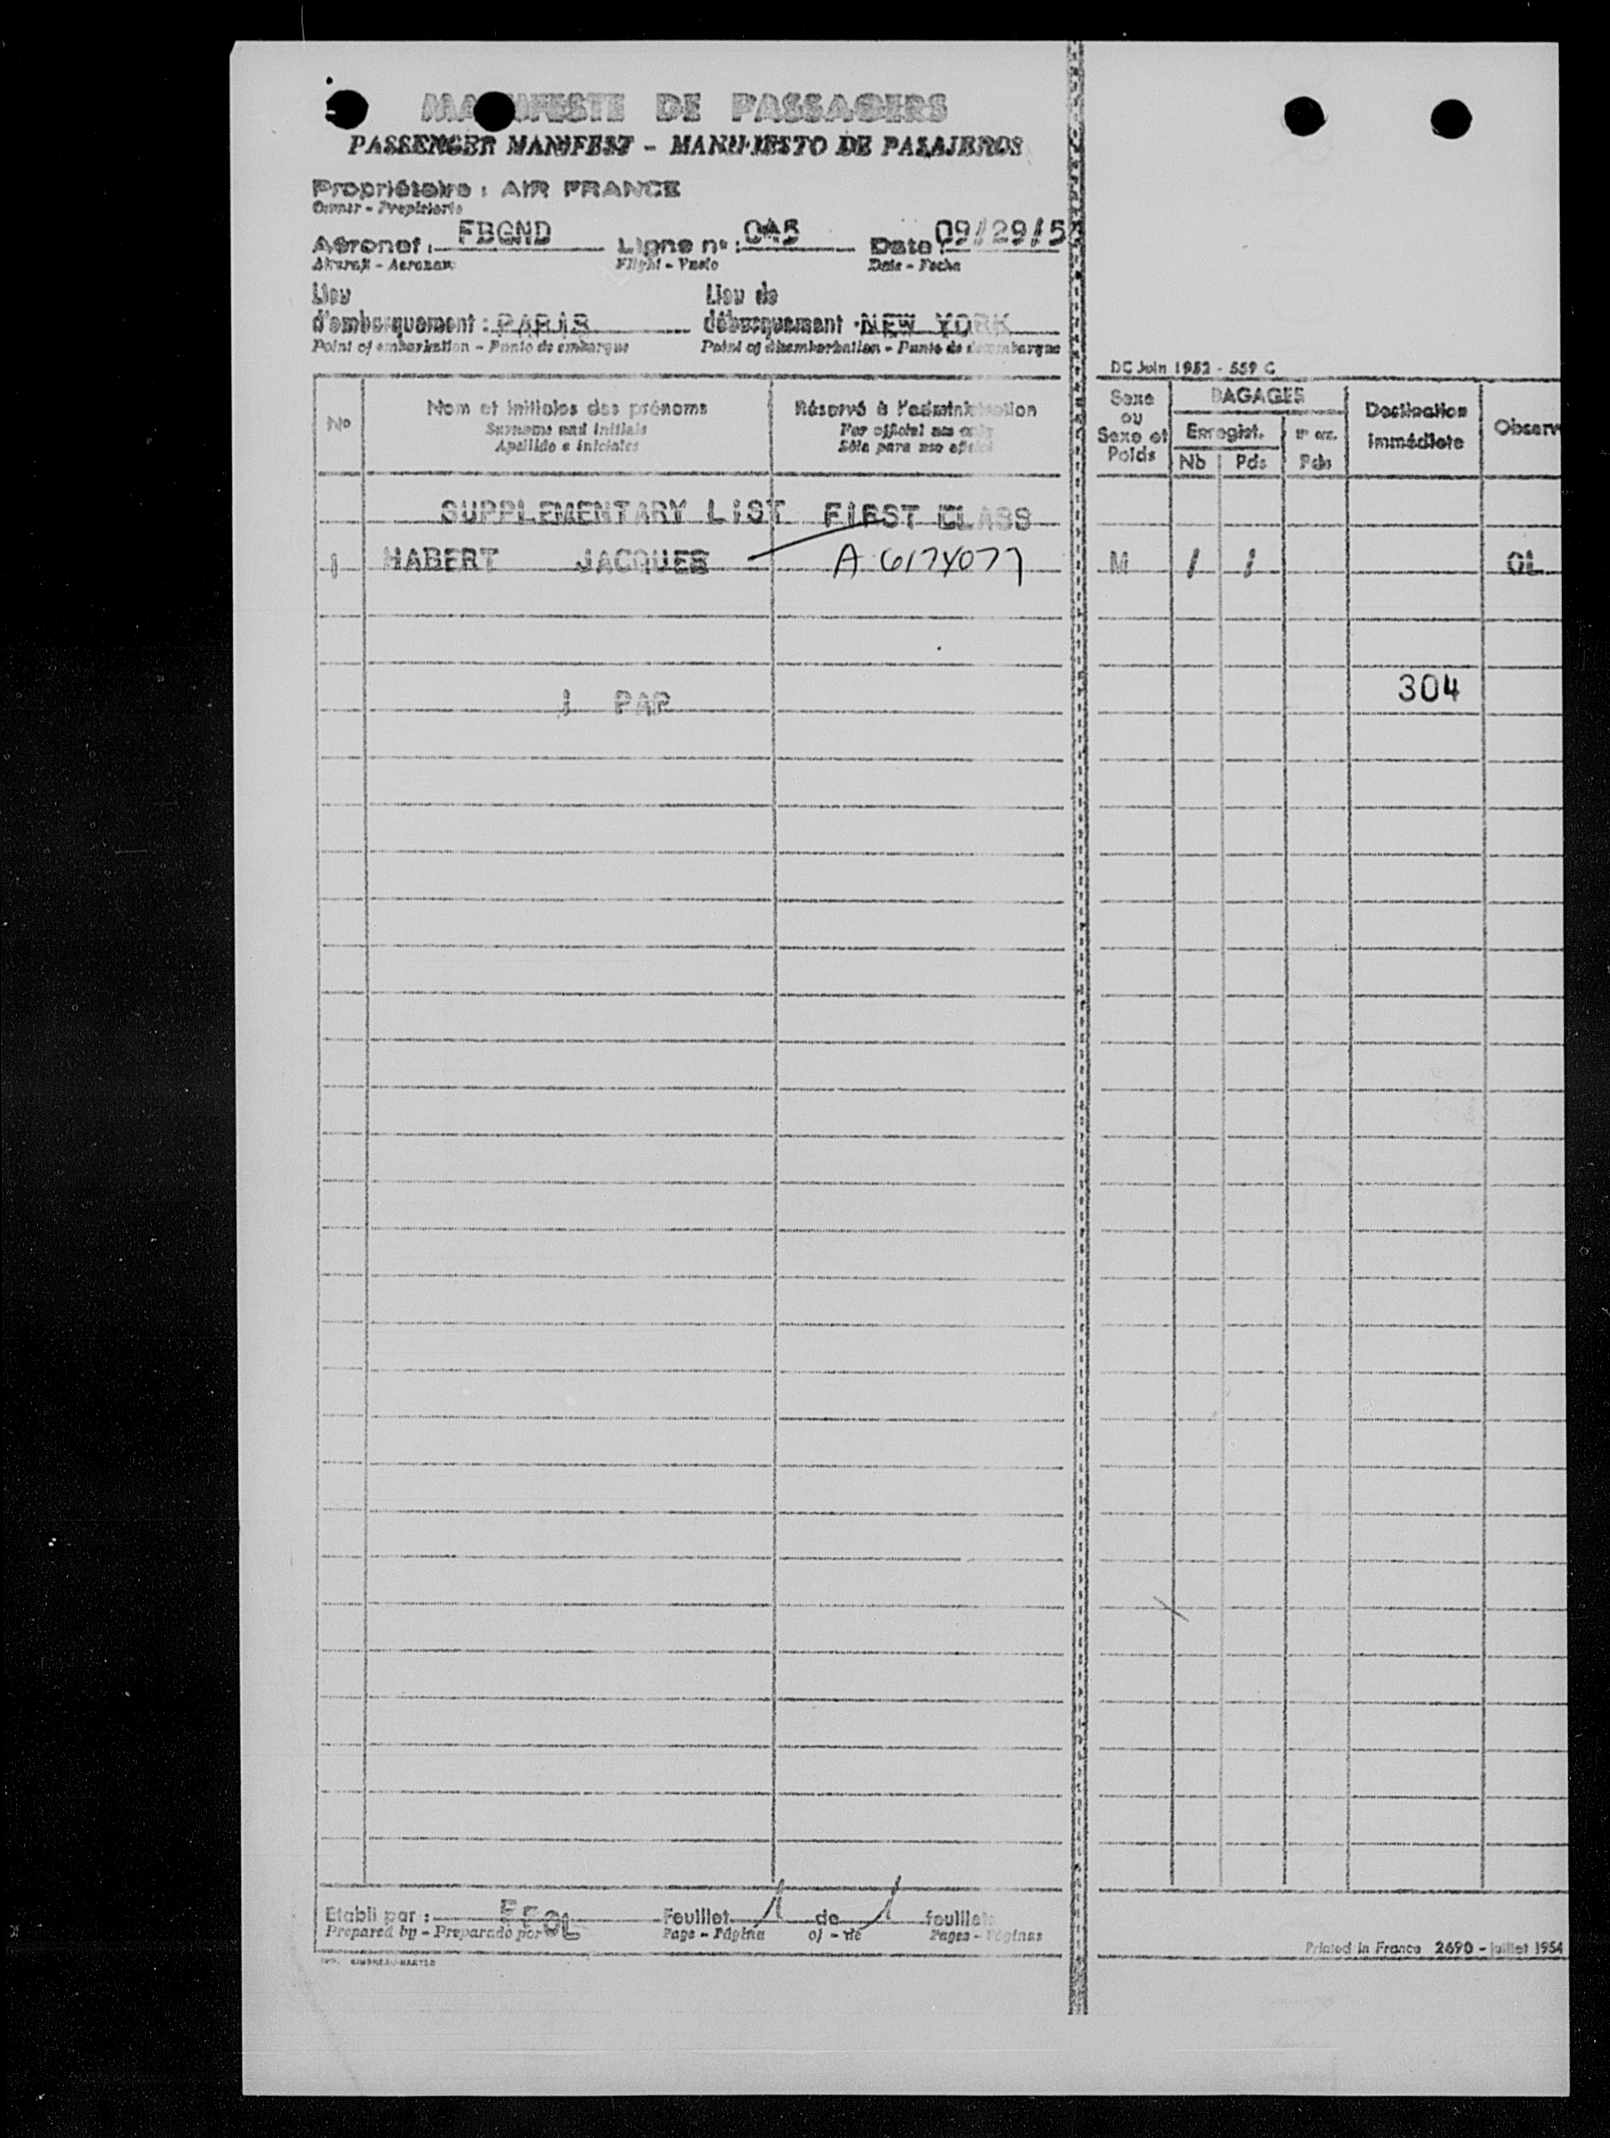 MANIFESTE DE PASSAGERS
PASSENGER MANIFEST - MANIFIESTO DE PASAJEROS
Propriétaire : AIR FRANCE
Owner - Propietario
Aéronef : FBGND Ligne n° : 045 Date : 09/29/5
Aircraft - Aeronave Flight - Vuelo Date - Fecha
Lieu d'embarquement : PARIS Lieu de débarquement : NEW YORK
Point of embarkation - Punto de embarque Point of disembarkation - Punto de desembarque
DC Juin 1952 - 559 C
No Nom et initiales des prénoms Réservé à l'administration Sexe ou Sexe et Poids BAGAGES Destination immédiate Observ
Surname and initials For official use only Enregist.
Apellido e iniciales Sólo para uso oficial Nb Pds Pds
SUPPLEMENTARY LIST FIRST CLASS
1 HABERT JACQUES A 6174077 M 1 1 OL
1 PAR 304
Etabli par : FFOL Feuillet 1 de 1 feuillets
Prepared by - Preparado por Page - Página of - de Pages - Páginas
Printed in France 2690 - juillet 1954